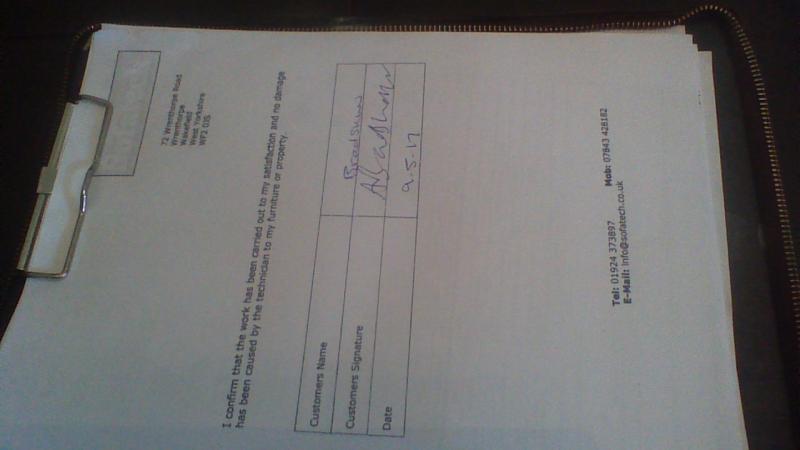 72 Wrenthorpe Road
Wrenthorpe
Wakefield
West Yorkshire
WF2 0JS
I confirm that the work has been carried out to my satisfaction and no damage
has been caused by the technician to my furniture or property.
Customers Name Bradshaw
Customers Signature
Date 9.5.17
Tel: 01924 373897 Mob: 07843 428182
E-Mail: info@sofatech.co.uk